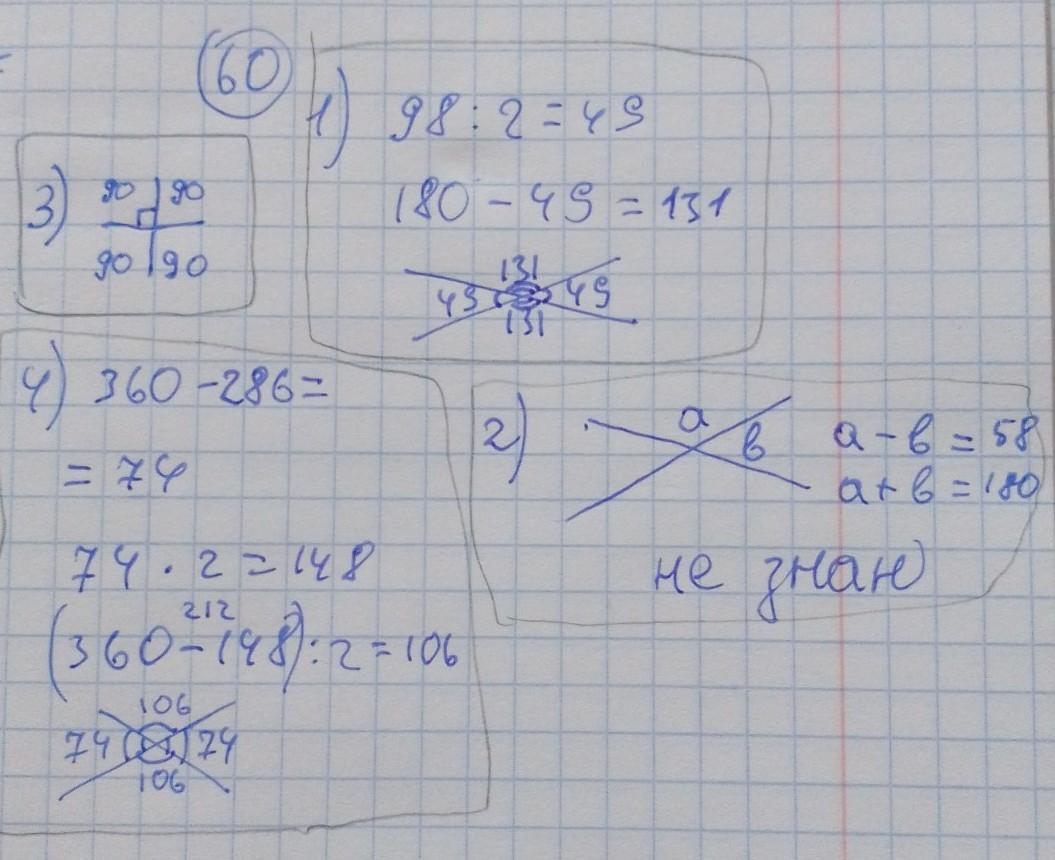 60
1) 98 : 2 = 49
180 - 49 = 131
131
49 49
131
3) 90 90
90 90
4) 360 - 286 =
= 74
74 · 2 = 148
212
(360 - 148) : 2 = 106
106
74 74
106
2) a в a - в = 58
a + в = 180
не знаю